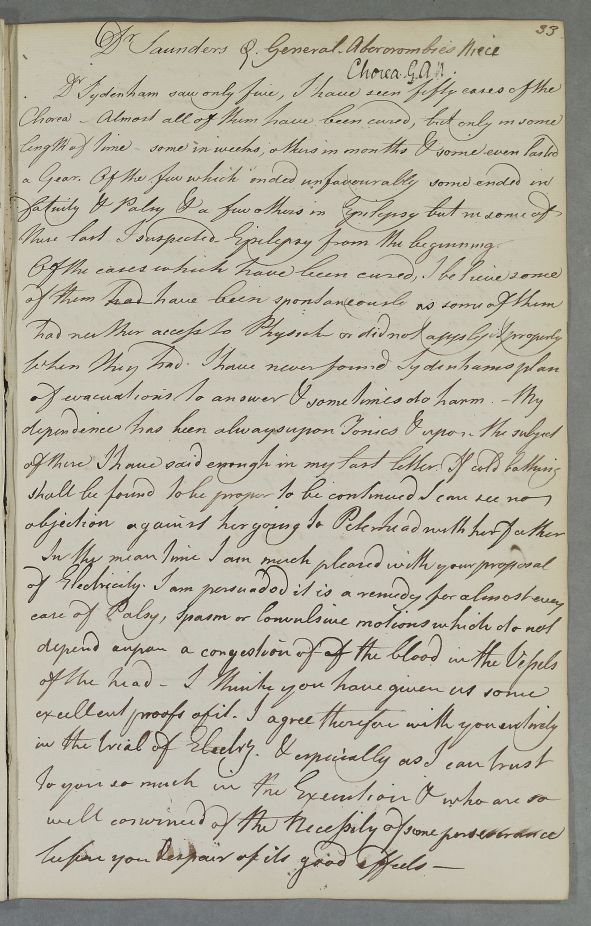 33
Dr Saunders Q. General Abercrombie's Niece
Chorea. G.A.N.
Dr Sydenham saw only five, I have seen fifty cases of the
Chorea - Almost all of them have been cured, but only in some
length of time - some in weeks, others in months & some even lasted
a Year. Of the few which ended unfavourably some ended in
Fatuity & Palsy & a few others in Epilepsy but in some of
these last I suspected Epilepsy from the beginning.
Of the cases which have been cured, I believe some
of them had have been spontaneously as some of them
had neither access to Physick or did not apply it properly
when they had. I have never found Sydenhams plan
of evacuations to answer & sometimes do harm. - My
dependence has been always upon Tonics & upon the subject
of these I have said enough in my last letter. If cold bathing
shall be found to be proper to be continued I can see no
objection against her going to Peterhead with her Father
In the mean time I am much pleased with your proposal
of Electricity. I am persuaded it is a remedy for almost every
case of Palsy, spasm or Convulsive motions which do not
depend upon a congestion of of the blood in the Vessels
of the head - I think you have given us some
excellent proofs of it. I agree therefore with you entirely
in the trial of Electry. & especially as I can trust
to you so much in the Execution & who are so
well convinced of the Necessity of some perseverance
before you Despair of its good effects —